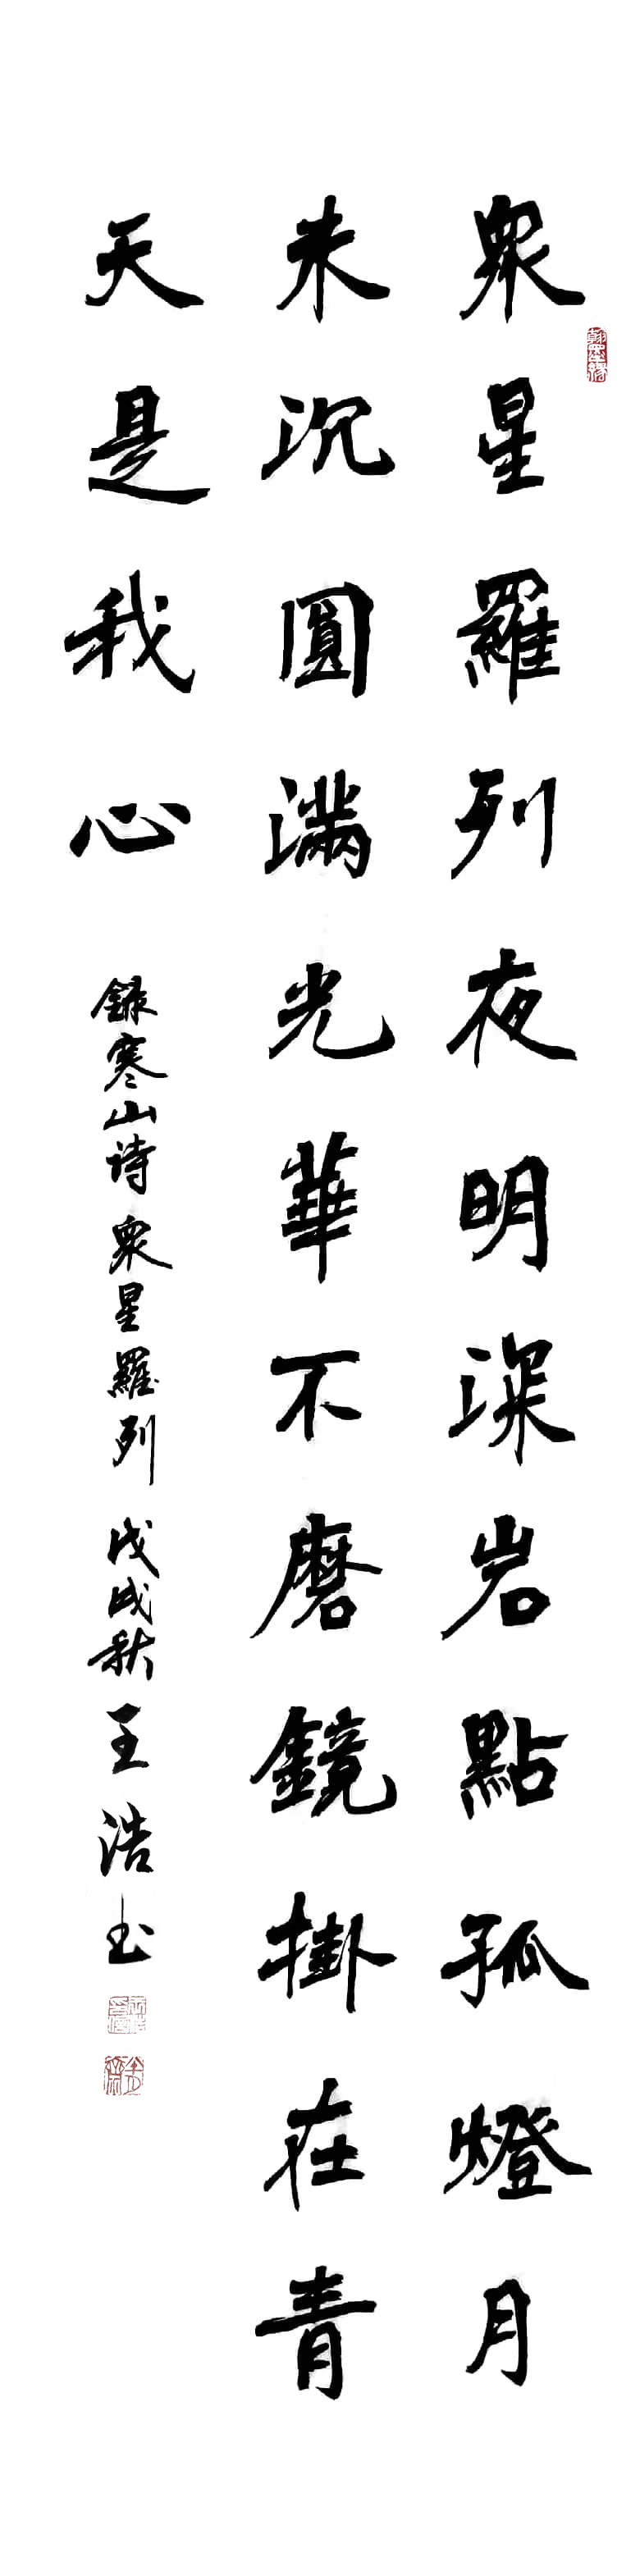 眾星羅列夜明深岩點孤燈月
未沉圓滿光華不磨鏡掛在青
天是我心
錄寒山诗眾星羅列戊戌秋王浩书
翰墨缘